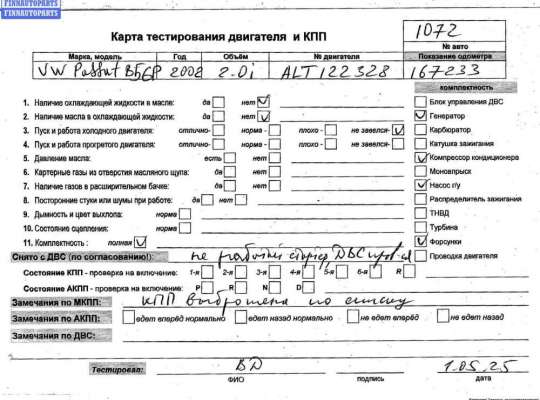 FINNAUTOPARTS
FINNAUTOPARTS
Карта тестирования двигателя и КПП
1072
№ авто
Марка, модель Год Объём № двигателя Показание одометра
VW Passat B5GP 2002 2.0i ALT122328 167233
комплектность
1. Наличие охлаждающей жидкости в масле: да нет
2. Наличие масла в охлаждающей жидкости: да нет
3. Пуск и работа холодного двигателя: отлично- норма - плохо - не завелся-
4. Пуск и работа прогретого двигателя: отлично- норма - плохо - не завелся-
5. Давление масла: есть нет
6. Картерные газы из отверстия масляного щупа: да нет
7. Наличие газов в расширительном бачке: да нет
8. Посторонние стуки или шумы при работе: да нет
9. Дымность и цвет выхлопа: норма
10. Состояние сцепления: норма
11. Комплектность : полная
Блок управления ДВС
Генератор
Карбюратор
Катушка зажигания
Компрессор кондиционера
Моновпрыск
Насос г/у
Распределитель зажигания
ТНВД
Турбина
Форсунки
Проводка двигателя
Снято с ДВС (по согласованию!): не рабочий ДВС
Состояние КПП - проверка на включение: 1-я 2-я 3-я 4-я 5-я 6-я R
Состояние АКПП - проверка на включение: P R N D
Замечания по МКПП: КПП по списку
Замечания по АКПП: едет вперёд нормально едет назад нормально не едет вперёд не едет назад
Замечания по ДВС:
Тестировал: ВД 1.05.25
ФИО подпись дата